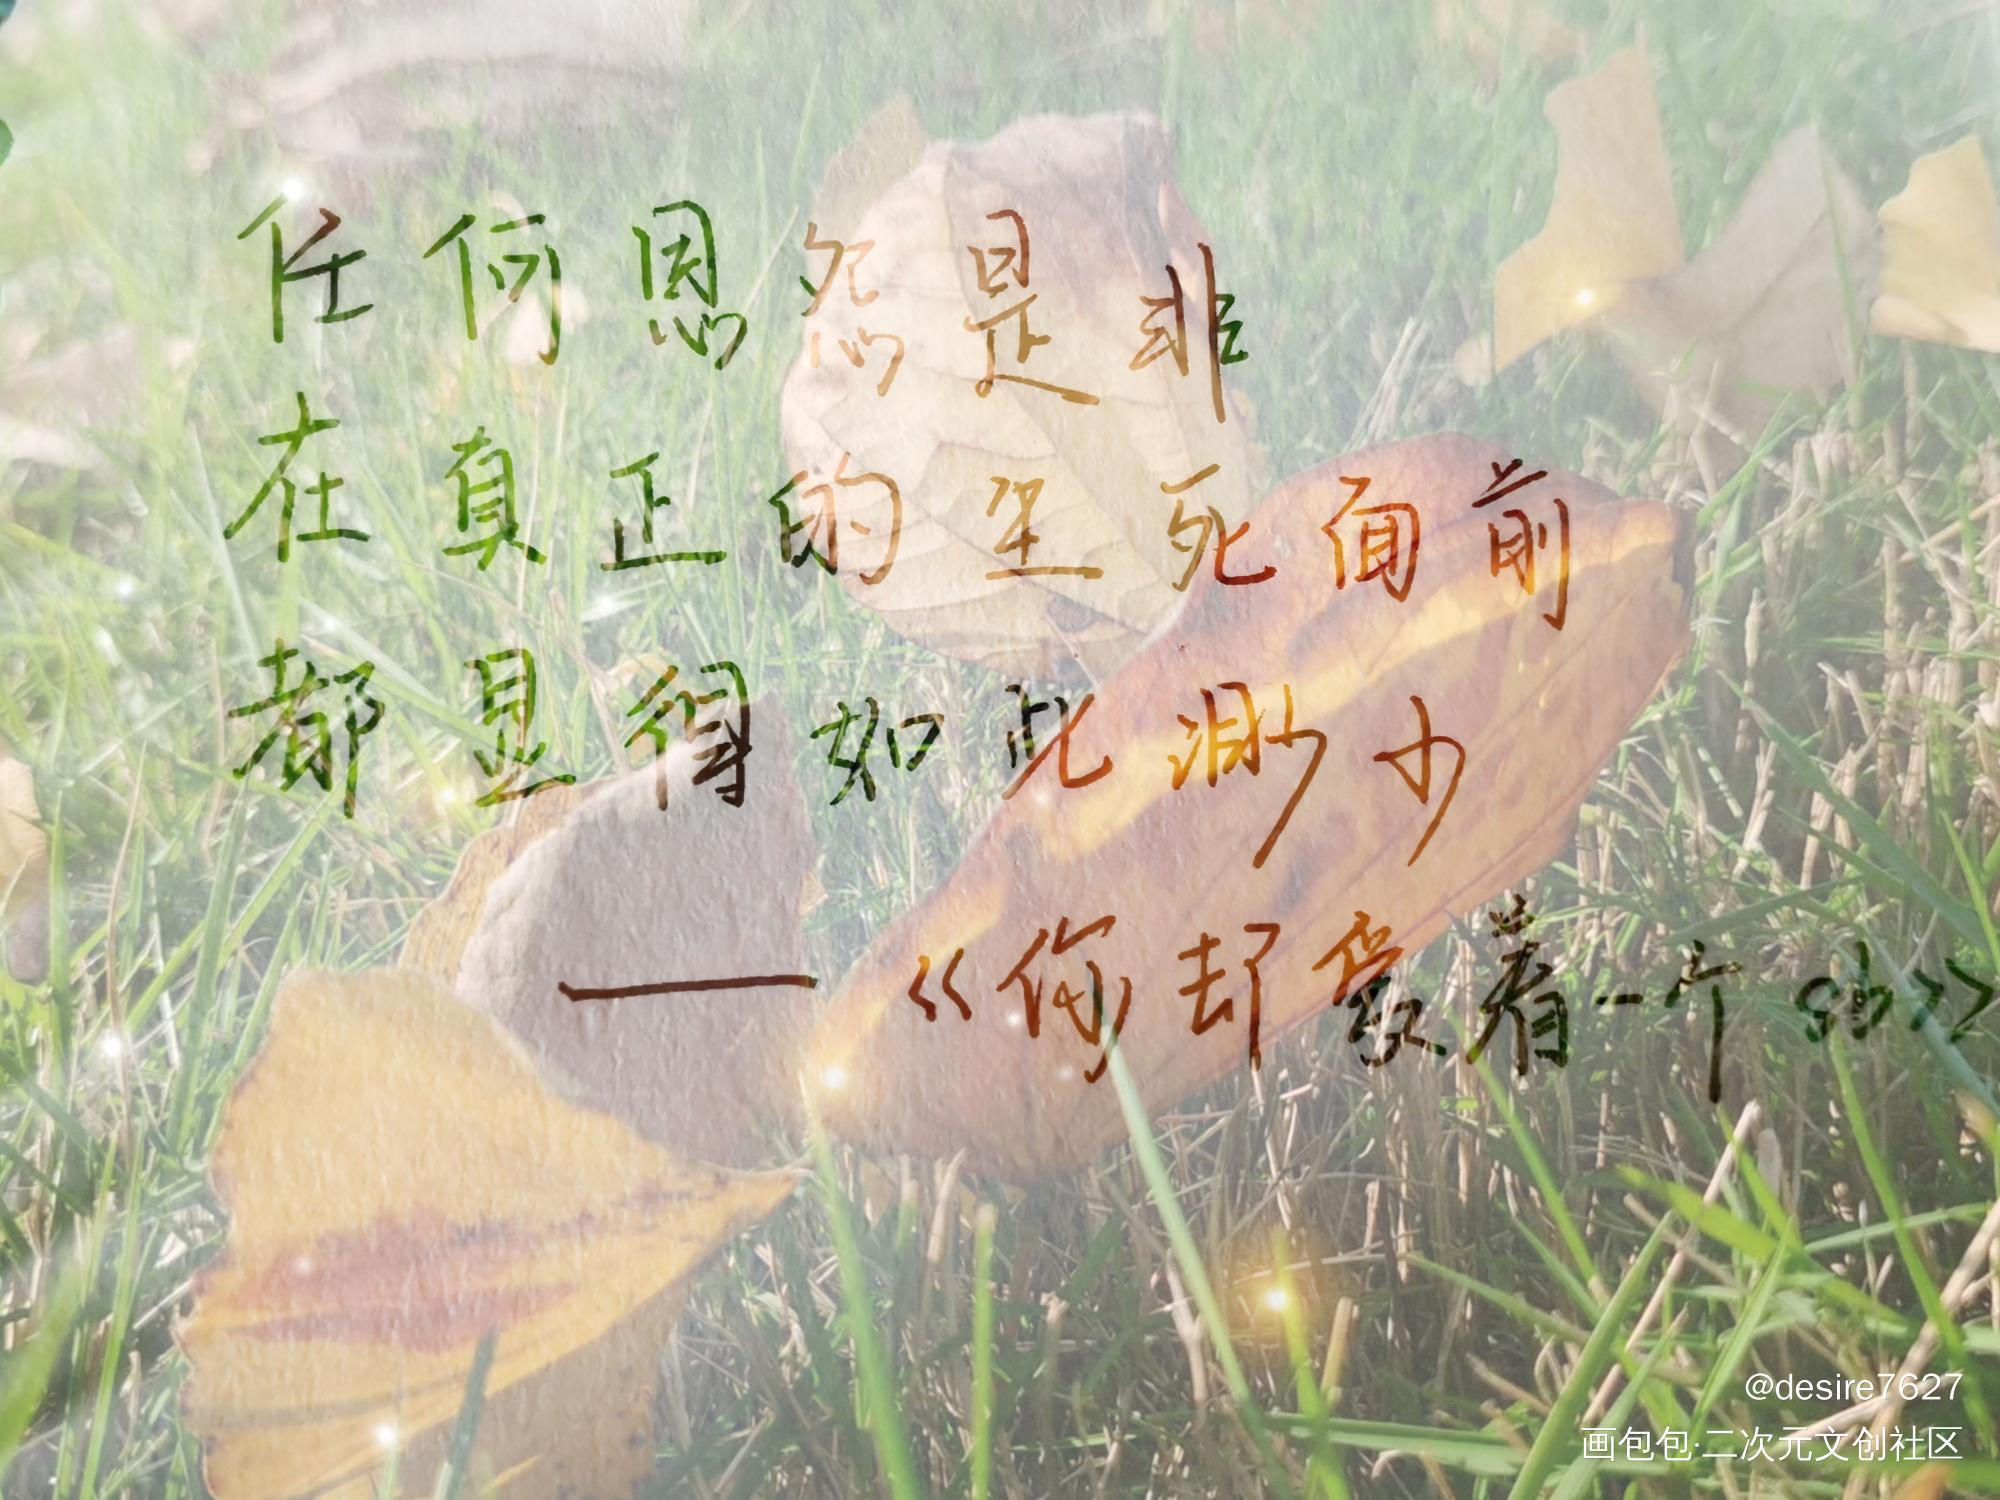 任何恩怨是非
在真正的生死面前
都显得如此渺少
——《你却爱着一个sb》
@desire7627
画包包·二次元文创社区